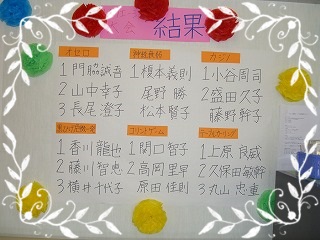 会 結果
オセロ
1 門脇誠吾
2 山中幸子
3 長尾澄子
1 榎本義則
尾野 勝
松本賢子
カジノ
1 小谷周司
2 盛田久子
藤野幹子
1 香川龍也
2 藤川智恵
3 横井千代子
コリントゲーム
1 関口智子
2 高岡里早
原田佳則
テーブルカーリング
1 上原良威
2 久保田敏幹
3 丸山忠重